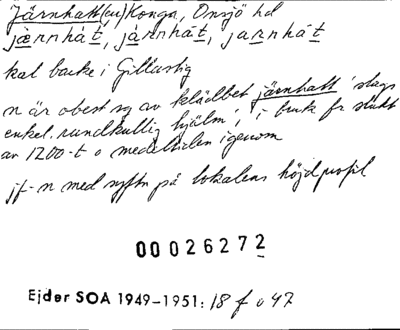 Järnhatt(en) Konga, Onsjö hd
järnhát, järnhát, jarnhát
kal backe i Gillastig
n är obest sg av klädbet järnhatt 'slags
enkel, rundkullig hjälm', i bruk fr slutet
av 1200-t o medeltiden igenom
jf-n med syftn på lokalens höjdprofil
00026272
Ejder SOA 1949-1951: 18 f o 47